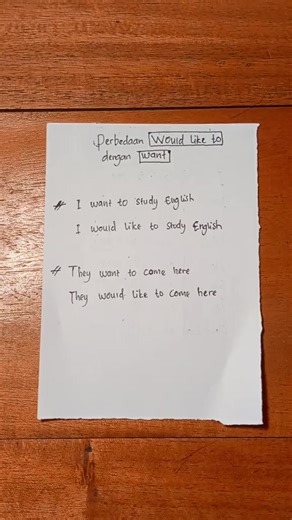 Perbedaan Would like to
dengan want
# I want to study English
I would like to study English
# They want to come here
They would like to come here